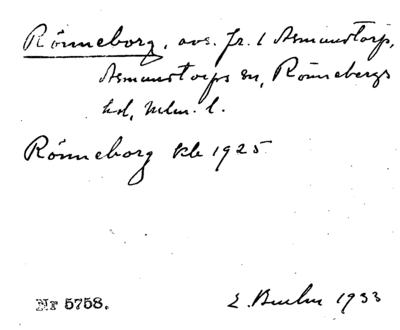 Rönneborg, avs. fr. 1 Asmundtorp,
Asmundtorps sn, Rönnebergs
hd, Mlm. l.
Rönneborg Kb 1925
Nr 5758.
E. 1933